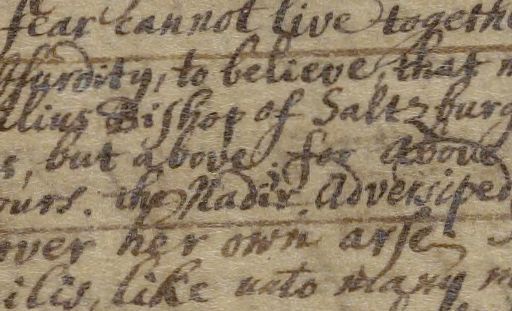 fear cannot live togethe
ſſurdity, to believe, that m
ilius Biſhop of Saltzburg
s, but above. for above
ours. the Nadir Adversiped
over her own arſe
ilis, like unto many m